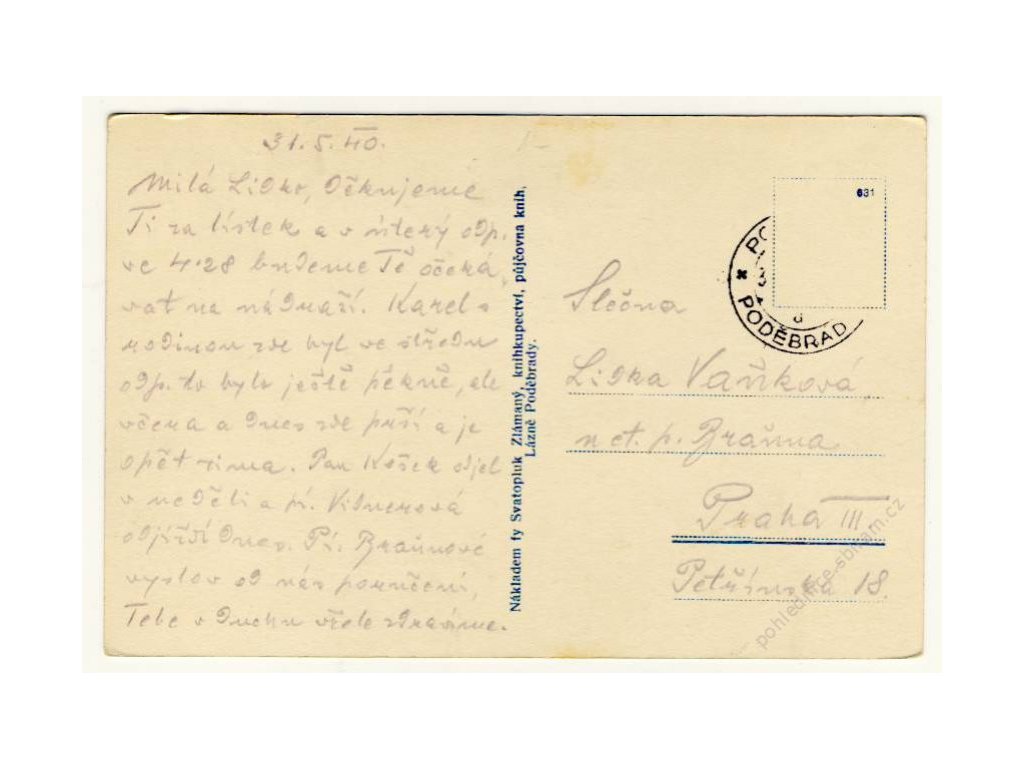 31.5.40.
Milá Lidko, děkujeme
Ti za lístek a v úterý odp.
ve 4.28 budeme Tě očeká,
vat na nádraží. Karel s
rodinou zde byl ve středu
odp. to bylo ještě pěkně, ale
včera a dnes zde prší a je
opět zima. Pan Košek odjel
v neděli a pí. Vidnerová
odjíždí dnes. Pí. Braunové
vyslov od nás poručení,
Tebe v duchu vřele zdravíme.
Nákladem fy Svatopluk Zlámaný, knihkupectví, půjčovna knih,
Lázně Poděbrady.
631
PO
PODĚBRAD
Slečna
Lidka Vaňková,
u ct. p. Brauna
Praha III.
Petřínská 18.
pohlednice-sbiram.cz